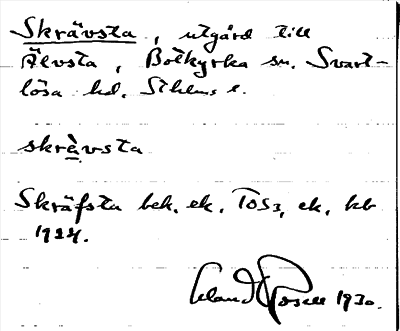 Skrävsta, utgård till
Älvsta, Botkyrka sn. Svart-
lösa hd. Sthlms l.
skrävsta
Skräfsta bek. ek. TOS3, ek. kb
1924.
Erland Rosell 1930.